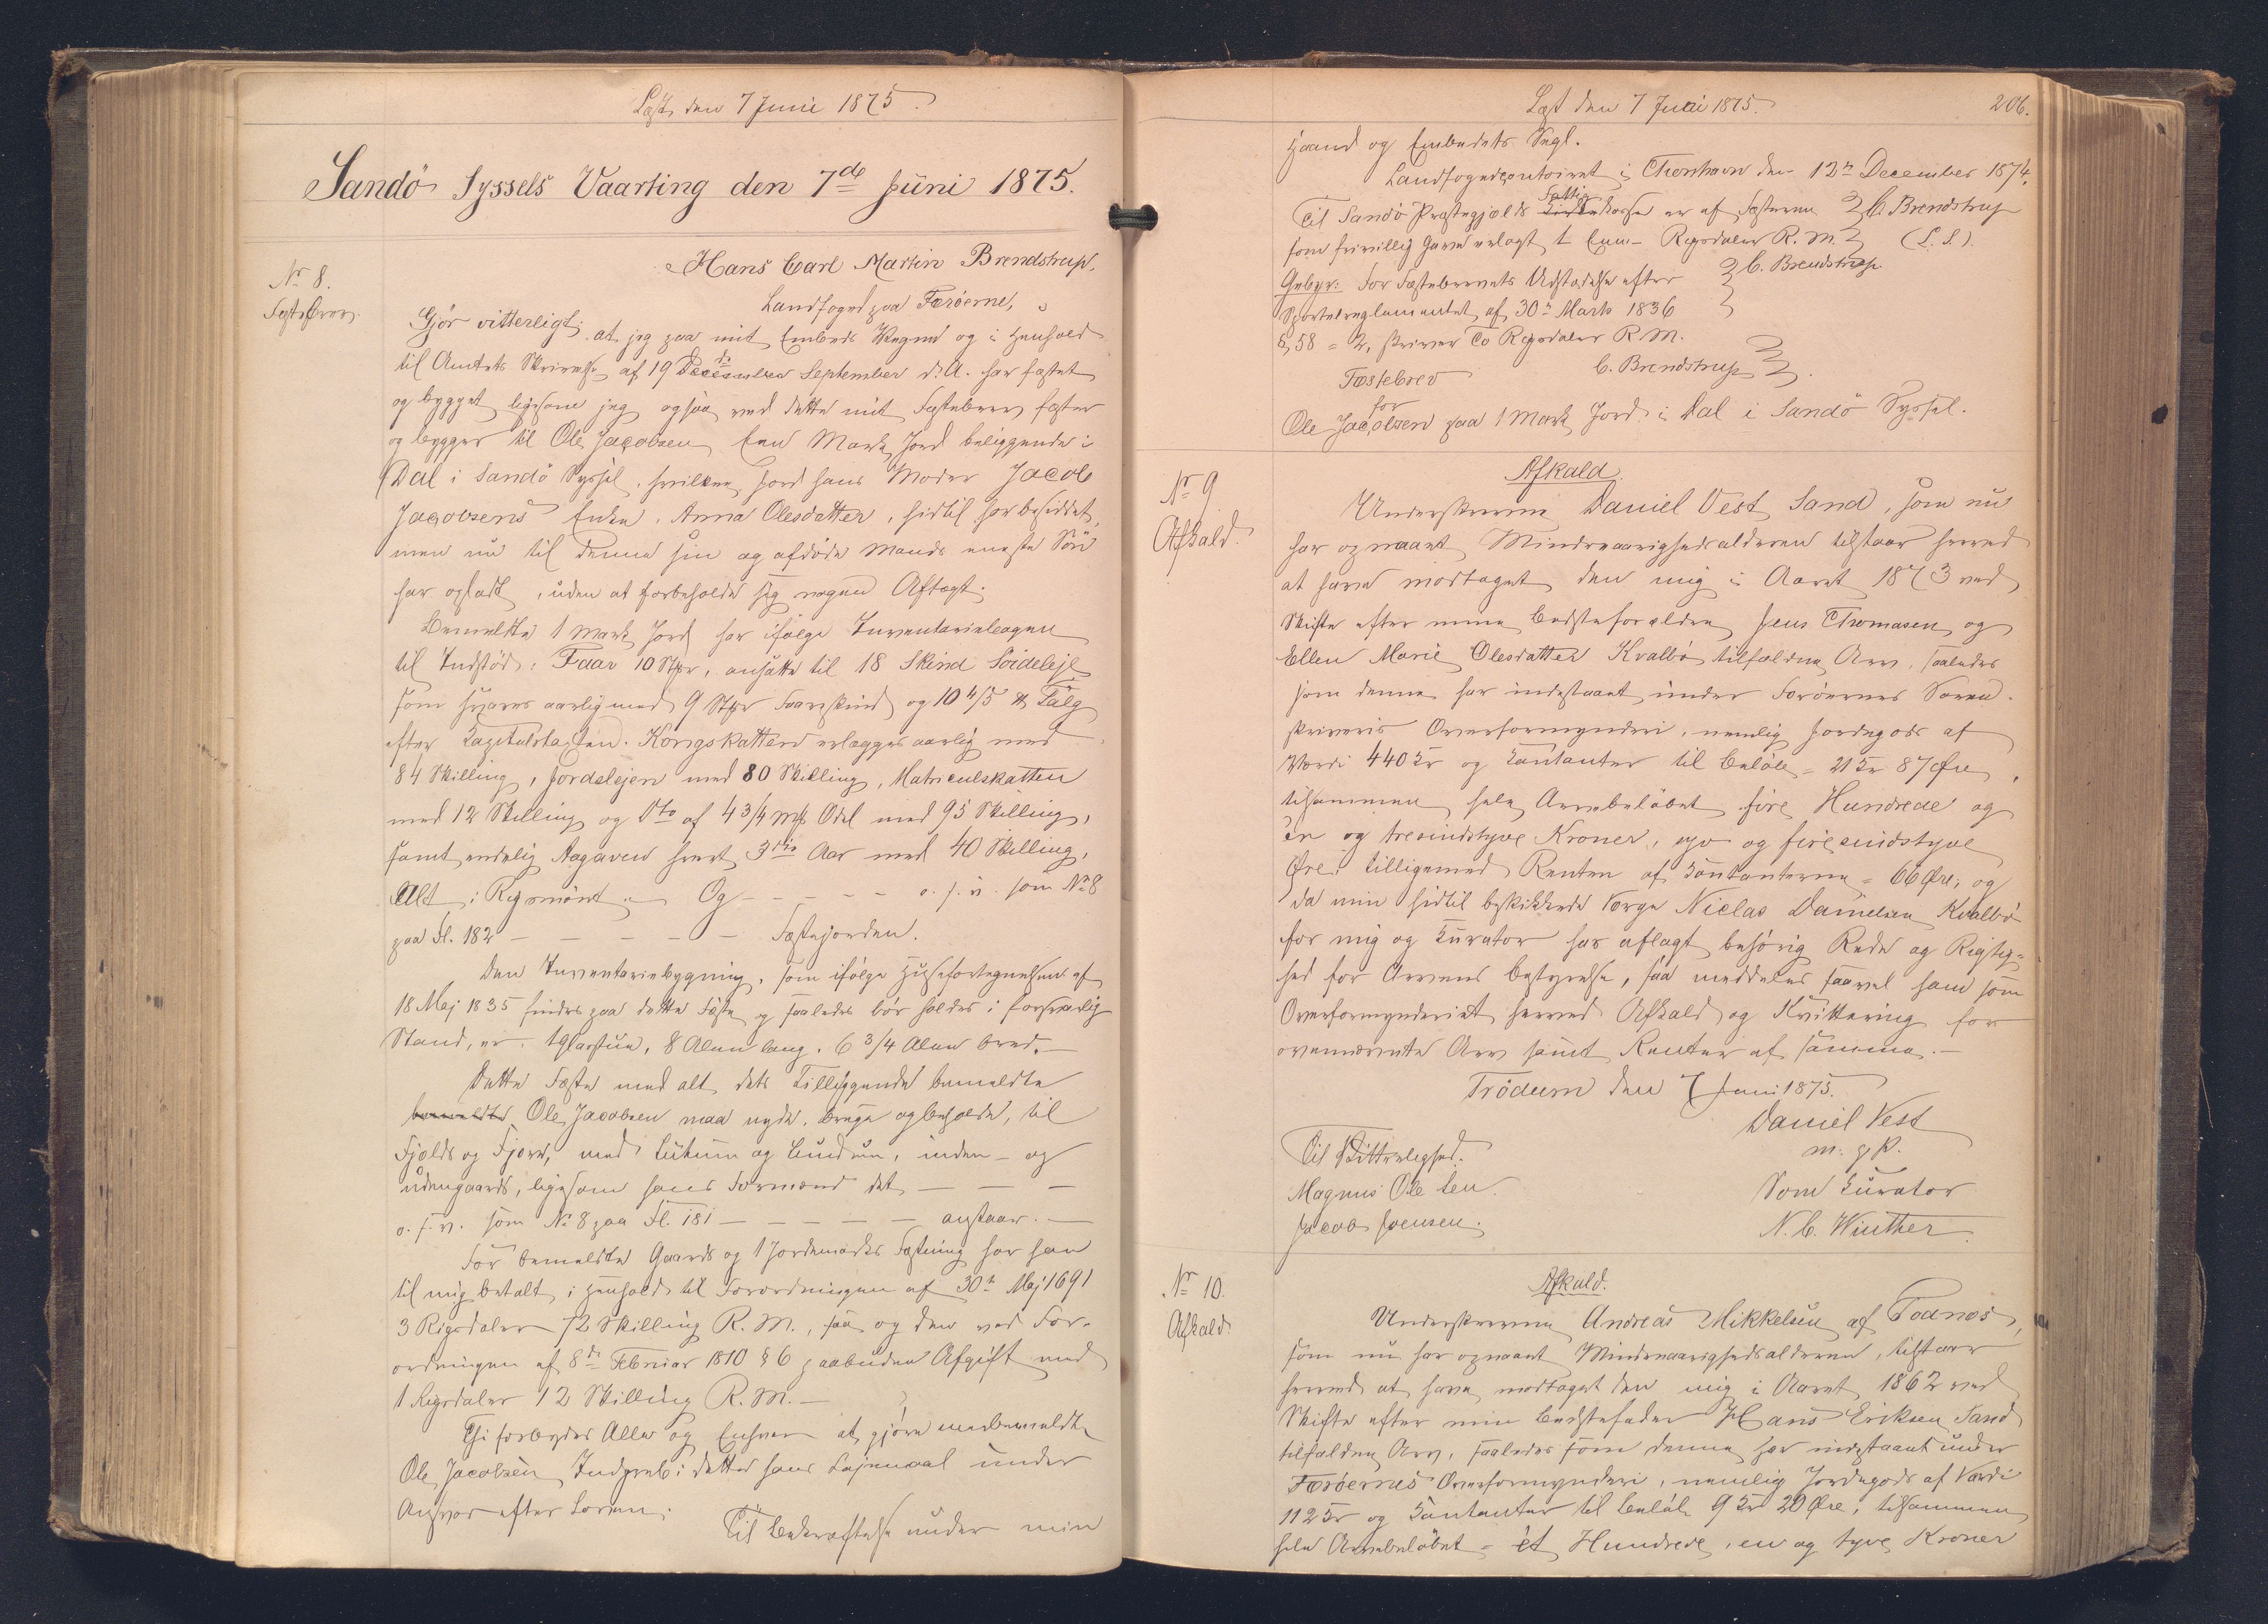 Læst den 7 Juni 1875.
Sandö Syssels Vaarting den 7de Juni 1875.
Nr 8.
Fæstebrev.
Hans Carl Martin Brendstrup,
Landfoged paa Færöerne,
Gjör vitterligt: at jeg paa mit Embeds Vegne og i Henhold
til Amtets Skrivelse af 19de December September d. A. har fæstet
og bygget ligesom jeg ogsaa ved dette mit Fæstebrev fæster
og bygger til Ole Jacobsen Een Mark Jord beliggende i
Dal i Sandö Syssel, hvilken Jord hans Moder Jacob
Jacobsens Enke, Anna Olesdatter, hidtil har besiddet,
men nu til denne sin og afdöde Mands eneste Sön
har opladt, uden at forbeholde sig nogen Aftægt.
Bemeldte 1 Mark Jord har ifölge Inventariebogen
til Indstöd: Faar 10 Stkr, ansatte til 18 Skind Söideleje
som svares aarlig med 9 Stkr Faareskind og 10 4/5 ℔ Talg
efter Kapitelstaxten. Kongskatten erlægges aarlig med
84 Skilling, Jordelejen med 80 Skilling, Matriculskatten
med 12 Skilling og Dto af 4 3/4 mk Odel med 95 Skilling,
samt endelig Aagaven hvert 3die Aar med 40 Skilling,
Alt i Rigsmönt. Og - - - - o. s. v. som No 8
paa Fl. 182 - - - - - Fæstejorden.
Den Inventariebygning, som ifölge Huusfortegnelsen af
18 Maj 1835 findes paa dette Fæste og saaledes bör holdes i forsvarlig
Stand, er: 1 Glarstue, 8 Alen lang, 6 3/4 Alen bred. -
Dette Fæste med alt dets Tilliggende bemeldte
bemeldte Ole Jacobsen maa nyde, bruge og beholde, til
Fjelds og Fjære, med Luttum og Lundum, inden- og
udengaards, ligesom hans Formænd det - - -
o. s. v. som No 8 paa Fl. 181 - - - - - anstaar. -
For bemeldte Gaards og 1 Jordemarks Fæstning har han
til mig betalt i Henhold til Forordningen af 30te Maj 1691
3 Rigsdaler 72 Skilling R. M., saa og den ved For-
ordningen af 8de Februar 1810 § 6 paabudne Afgift med
1 Rigsdaler 12 Skilling R. M. -
Thi forbydes Alle og Enhver at gjöre merbemeldte
Ole Jacobsen Indgreb i dette hans Lejemaal under
Ansvar efter Loven.
Til Bekræftelse under min
Læst den 7 Juni 1875.
206.
Haand og Embedets Segl.
Landfogedcontoiret i Thorshavn den 12te December 1874.
Til Sandö Præstegjælds Kirkekasse Fattig er af Fæsteren
C. Brendstrup
som frivillig Gave erlagt 1 Een Rigsdaler R. M.
(L. S.)
Gebyr: For Fæstebrevets Udstædelse efter
C. Brendstrup.
Sportelreglementet af 30te Marts 1836
§ 58 = 2, skriver To Rigsdaler R. M.
C. Brendstrup
Fæstebrev
for
Ole Jacobsen paa 1 Mark Jord i Dal i Sandö Syssel.
Nr 9
Afkald.
Afkald
Underskrevne Daniel Vest Sand, som nu
har opnaaet Mindreaarighedsalderen tilstaar herved
at have modtaget den mig i Aaret 1873 ved
Skifte efter mine Bedsteforældre Jens Thomasen og
Ellen Marie Olesdatter Kvalbö tilfaldne Arv, saaledes
som denne har indestaaet under Færöernes Soren-
skriveris Overformynderi, nemlig Jordegods af
Værdi 440 Kr og Kontanter til Belöb = 21 Kr 87 Øre,
tilsammen hele Arvebelöbet fire Hundrede og
en og tresindstyve Kroner, syv og firesindstyve
Øre, tilligemed Renten af Kontanterne = 66 Øre; og
da min hidtil beskikkede Værge Niclas Danielsen Kvalbö
for mig og Kurator har aflagt behörig Rede og Rigtig-
hed for Arvens Bestyrelse, saa meddeles saavel ham som
Overformynderiet herved Afkald og Kvittering for
ovennævnte Arv samt Renter af samme. -
Trödum den 7 Juni 1875.
Daniel Vest
m. f. P.
Til Vitterlighed.
Magnus Olesen.
Som Kurator
Jacob Joensen.
N. C. Winther
Nr 10.
Afkald.
Afkald.
Underskrevne Andreas Mikkelsen af Todnæs,
som nu har opnaaet Mindreaarighedsalderen, tilstaar
herved at have modtaget den mig i Aaret 1862 ved
Skifte efter min Bedstefader Hans Eriksen Sand
tilfaldne Arv, saaledes som denne har indestaaet under
Færöernes Overformynderi, nemlig Jordegods af Værdi
112 Kr og Kontanter til Belöb 9 Kr 20 Øre, tilsammen
hele Arvebelöbet = ét Hundrede, en og tyve Kroner